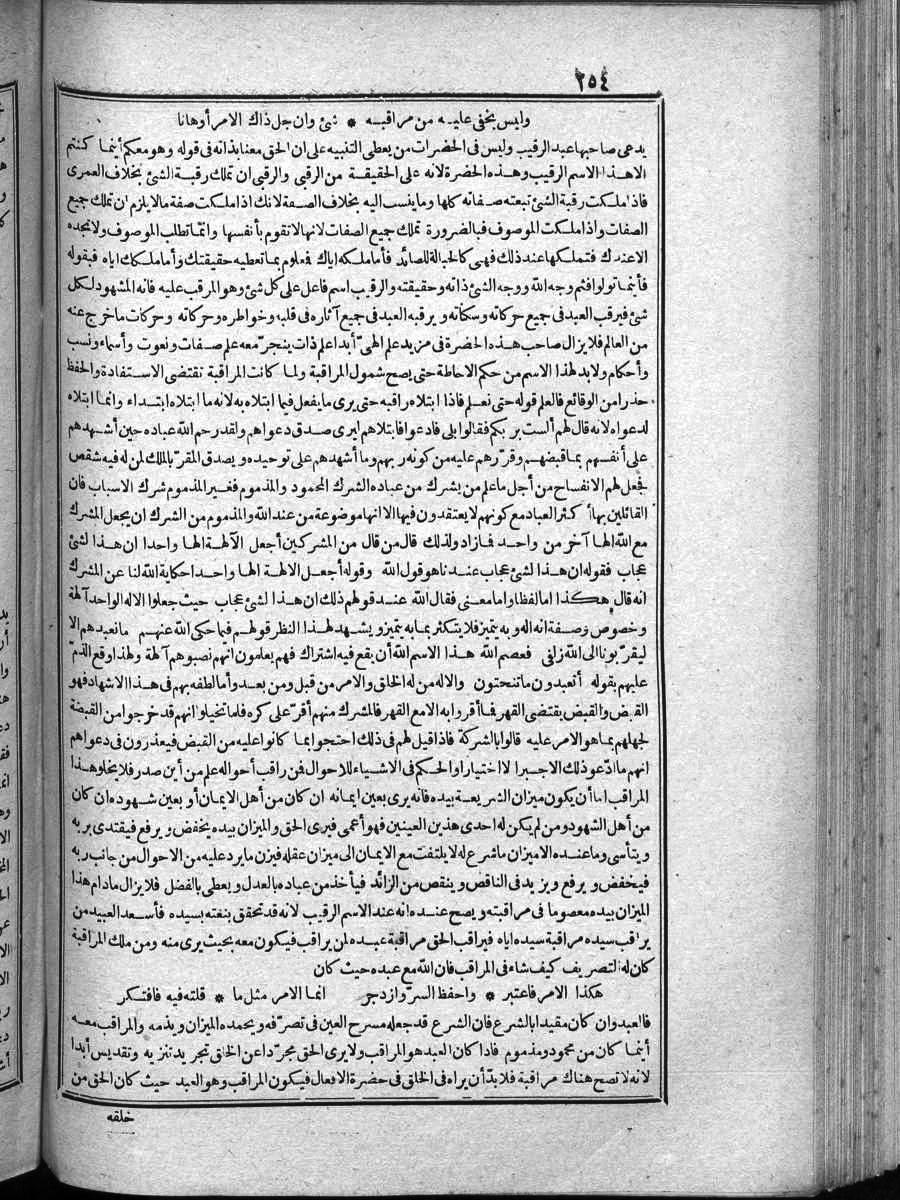 ٢٥٤
وليس يخفى عليه من مراقبه * شئ وان جل ذاك الامر أوهانا
يدعى صاحبها عبد الرقيب وليس فى الحضرات من يعطى التنبيه على ان الحق معنا بذاته فى قوله وهو معكم أينما كنتم
الا هذا الاسم الرقيب وهذه الحضرة لانه على الحقيقة من الرقبى والرقبى ان تملك رقبة الشئ بخلاف العمرى
فاذا ملكت رقبة الشئ تبعته صفاته كلها وما ينسب اليه بخلاف الصفة لانك اذا ملكت صفة ما لا يلزم ان تملك جميع
الصفات واذا ملكت الموصوف فبالضرورة تملك جميع الصفات لانها لا تقوم بأنفسها وانما تطلب الموصوف ولا تجده
الا عندك فتملكها عند ذلك فهى كالحبالة للصائد فأما ملكه اياك فعلوم بما تعطيه حقيقتك وأما ملكك اياه فبقوله
فأينما تولوا فثم وجه الله ووجه الشئ ذاته وحقيقته والرقيب اسم فاعل على كل شئ وهو المرقب عليه فانه المشهود لكل
شئ فيرقب العبد فى جميع حركاته وسكناته ويرقبه العبد فى جميع آثاره فى قلبه وخواطره وحركاته وحركات ما خرج عنه
من العالم فلا يزال صاحب هذه الحضرة فى مزيد علم الهىّ أبدا علم ذات ينجرّ معه علم صفات ونعوت وأسماء ونسب
وأحكام ولا بد لهذا الاسم من حكم الاحاطة حتى يصح شمول المراقبة ولما كانت المراقبة تقتضى الاستفادة والحفظ
حذرا من الوقائع فالعلم قوله حتى نعلم فاذا ابتلاه راقبه حتى يرى ما يفعل فيما ابتلاه به لانه ما ابتلاه ابتداء وانما ابتلاه
لدعواه لانه قال لهم ألست بربكم فقالوا بلى فادعوا فابتلاهم ليرى صدق دعواهم ولقد رحم الله عباده حين أشهدهم
على أنفسهم بما قبضهم وقرّرهم عليه من كونه ربهم وما أشهدهم على توحيده ويصدق المقرّ بالملك لمن له فيه شقص
فجعل لهم الانفساح من أجل ما علم من يشرك من عباده الشرك المحمود والمذموم فغير المذموم شرك الاسباب فان
القائلين بها أكثر العباد مع كونهم لا يعتقدون فيها الا انها موضوعة من عند الله والمذموم من الشرك ان يجعل المشرك
مع الله الها آخر من واحد فزاد ولذلك قال من قال من المشركين أجعل الآلهة الها واحدا ان هذا لشئ
عجاب فقوله ان هذا لشئ عجاب عندنا هو قول الله وقوله أجعل الالهة الها واحدا حكاية الله لنا عن المشرك
انه قال هكذا اما لفظا واما معنى فقال الله عند قولهم ذلك ان هذا لشئ عجاب حيث جعلوا الاله الواحد آلهة
وخصوص وصفه انه اله وبه يتميز فلا يتكثر بما به يتميز ويشهد لهذا النظر قولهم فيما حكى الله عنهم ما نعبدهم الا
ليقرّبونا الى الله زلفى فعصم الله هذا الاسم الله أن يقع فيه اشتراك فهم يعلمون انهم نصبوهم آلهة ولهذا وقع الذمّ
عليهم بقوله أتعبدون ما تنحتون والاله من له الخلق والامر من قبل ومن بعد وأما لطفه بهم فى هذا الاشهاد فهو
القبض والقبض يقتضى القهر فما أقروا به الا مع القهر فالمشرك منهم أقرّ على كره فلما تخيلوا انهم قد خرجوا من القبضة
لجهلهم بما هو الامر عليه قالوا بالشركة فاذا قيل لهم فى ذلك احتجوا بما كانوا عليه من القبض فيعذرون فى دعواهم
انهم ما ادّعوا ذلك الا جبرا لا اختيارا والحكم فى الاشياء للاحوال فمن راقب أحواله علم من أين صدر فلا يخلو هذا
المراقب اما أن يكون ميزان الشريعة بيده فانه يرى بعين ايمانه ان كان من أهل الايمان أو بعين شهوده ان كان
من أهل الشهود ومن لم يكن له احدى هذين العينين فهو أعمى فيرى الحق والميزان بيده يخفض ويرفع فيقتدى بربه
ويتأسى وما عنده الا ميزان ما شرع له لا يلتفت مع الايمان الى ميزان عقله فيزن ما يرد عليه من الاحوال من جانب ربه
فيخفض ويرفع ويزيد فى الناقص وينقص من الزائد فيأخذ من عباده بالعدل ويعطى بالفضل فلا يزال ما دام هذا
الميزان بيده معصوما فى مراقبته ويصح عنده انه عند الاسم الرقيب لانه قد تحقق بنعته بسيده فأسعد العبيد من
يراقب سيده مراقبة سيده اياه فيراقب الحق مراقبة عبده لمن يراقب فيكون معه بحيث يرى منه ومن ملك المراقبة
كان له التصريف كيف شاء فى المراقب فان الله مع عبده حيث كان
هكذا الامر فاعتبر * واحفظ السرّ وازدجر انما الامر مثل ما * قلته فيه فافتكر
فالعبد وان كان مقيدا بالشرع فان الشرع قد جعله مسرح العين فى تصرّفه ويحمده الميزان ويذمه والمراقب معه
أينما كان من محمود ومذموم فاذا كان العبد هو المراقب ولا يرى الحق مجرّدا عن الخلق تجريد تنزيه وتقديس أبدا
لانه لا تصح هناك مراقبة فلا بدّ أن يراه فى الخلق فى حضرة الافعال فيكون المراقب وهو العبد حيث كان الحق من
خلقه